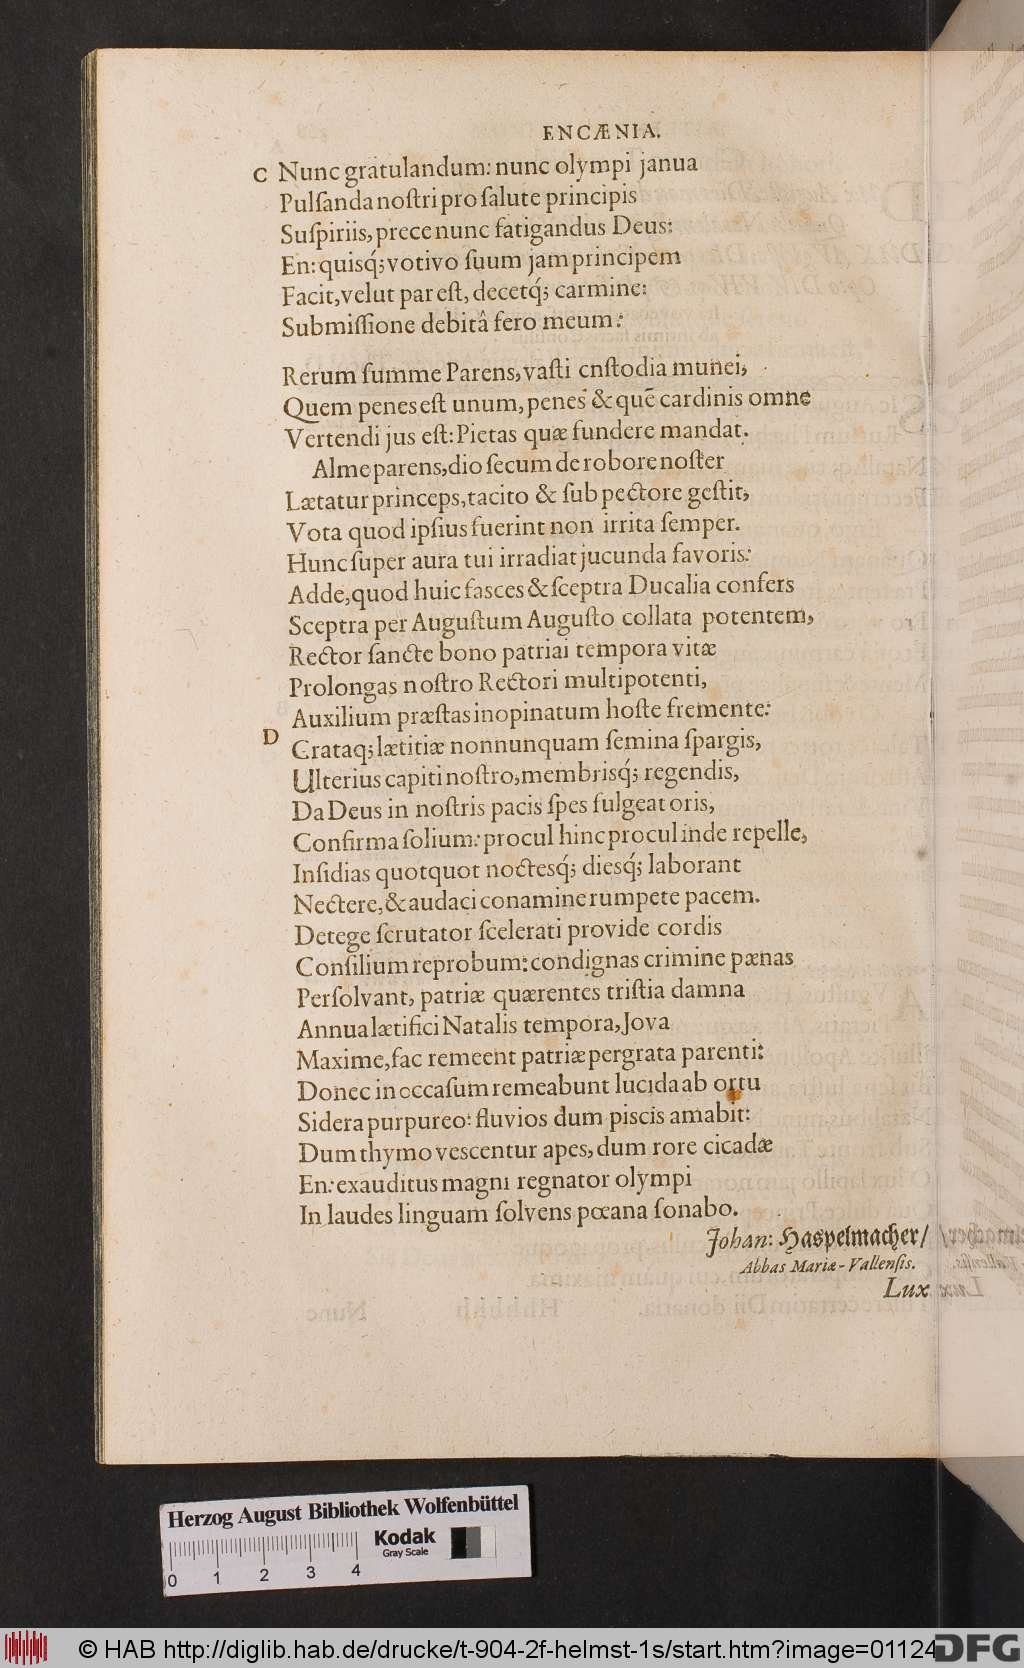 ENCÆNIA.
C Nunc gratulandum: nunc olympi janua
Pulſanda noſtri pro ſalute principis
Suſpiriis, prece nunc fatigandus Deus:
En: quisq́; votivo ſuum jam principem
Facit, velut par eſt, decetq́; carmine:
Submiſſione debitâ fero meum:
Rerum ſumme Parens, vaſti cnſtodia munei,
Quem penes eſt unum, penes & quē cardinis omne
Vertendi jus eſt: Pietas quæ fundere mandat.
Alme parens, dio ſecum de robore noſter
Lætatur princeps, tacito & ſub pectore geſtit,
Vota quod ipſius fuerint non irrita ſemper.
Hunc ſuper aura tui irradiat jucunda favoris:
Adde, quod huic faſces & ſceptra Ducalia confers
Sceptra per Auguſtum Auguſto collata potentem,
Rector ſancte bono patriai tempora vitæ
Prolongas noſtro Rectori multipotenti,
Auxilium præſtas inopinatum hoſte fremente:
D Grataq; lætitiæ nonnunquam ſemina ſpargis,
Ulterius capiti noſtro, membrisq́; regendis,
Da Deus in noſtris pacis ſpes fulgeat oris,
Confirma ſolium: procul hinc procul inde repelle,
Inſidias quotquot noctesq́; diesq́; laborant
Nectere, & audaci conamine rumpete pacem.
Detege ſcrutator ſcelerati provide cordis
Conſilium reprobum: condignas crimine pænas
Perſolvant, patriæ quærentes triſtia damna
Annua lætifici Natalis tempora, Jova
Maxime, fac remeent patriæ pergrata parenti:
Donec in occaſum remeabunt lucida ab ortu
Sidera purpureo: fluvios dum piscis amabit:
Dum thymo vescentur apes, dum rore cicadæ
En: exauditus magni regnator olympi
In laudes linguam ſolvens pœana ſonabo.
Johan: Haspelmacher/
Abbas Mariæ-Vallenſis.
Lux
Herzog August Bibliothek Wolfenbüttel
Kodak
Gray Scale
0 1 2 3 4
© HAB http://diglib.hab.de/drucke/t-904-2f-helmst-1s/start.htm?image=01124
DFG